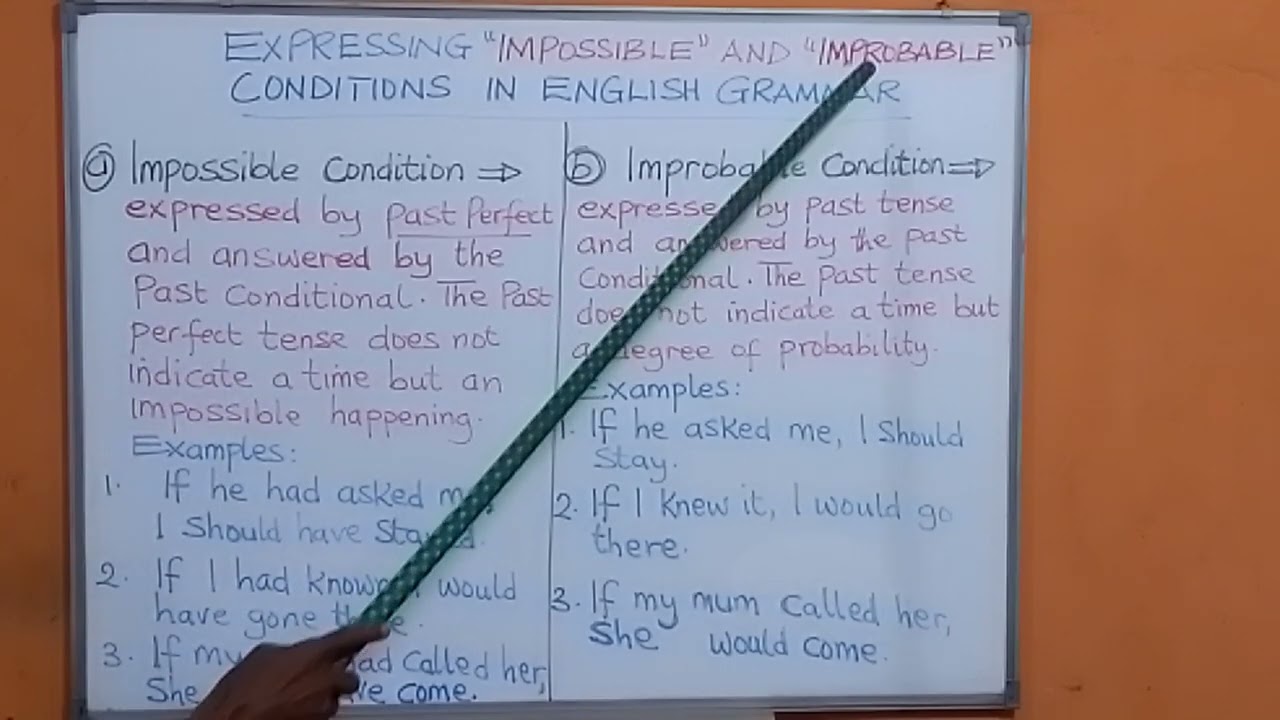 EXPRESSING "IMPOSSIBLE" AND "IMPROBABLE"
CONDITIONS IN ENGLISH GRAMMAR
a Impossible Condition ⇒
expressed by Past Perfect
and answered by the
Past Conditional. The Past
perfect tense does not
indicate a time but an
impossible happening.
Examples:
1. If he had asked
I Should have
2. If I had known would
have gone
3. If my had called her,
She come.
b Improbable Condition ⇒
expressed by past tense
and answered by the past
Conditional. The past tense
does not indicate a time but
a degree of probability.
Examples:
1. If he asked me, I Should
Stay.
2. If I knew it, I would go
there.
3. If my mum called her,
She would come.